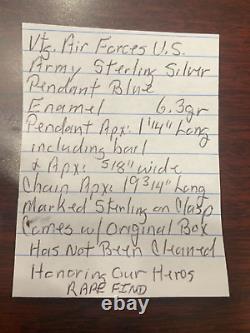 Vtg. Air Forces U.S.
Army Sterling Silver
Pendant Blue
Enamel 6.3gr
Pendant Apx: 1"1/4" Long
including bail
+ Apx: 5/8" wide
Chain Apx: 19 3/4" Long
Marked Sterling on Clasp
Comes w/ Original Box
Has Not Been Cleaned
Honoring Our Heros
RARE FIND